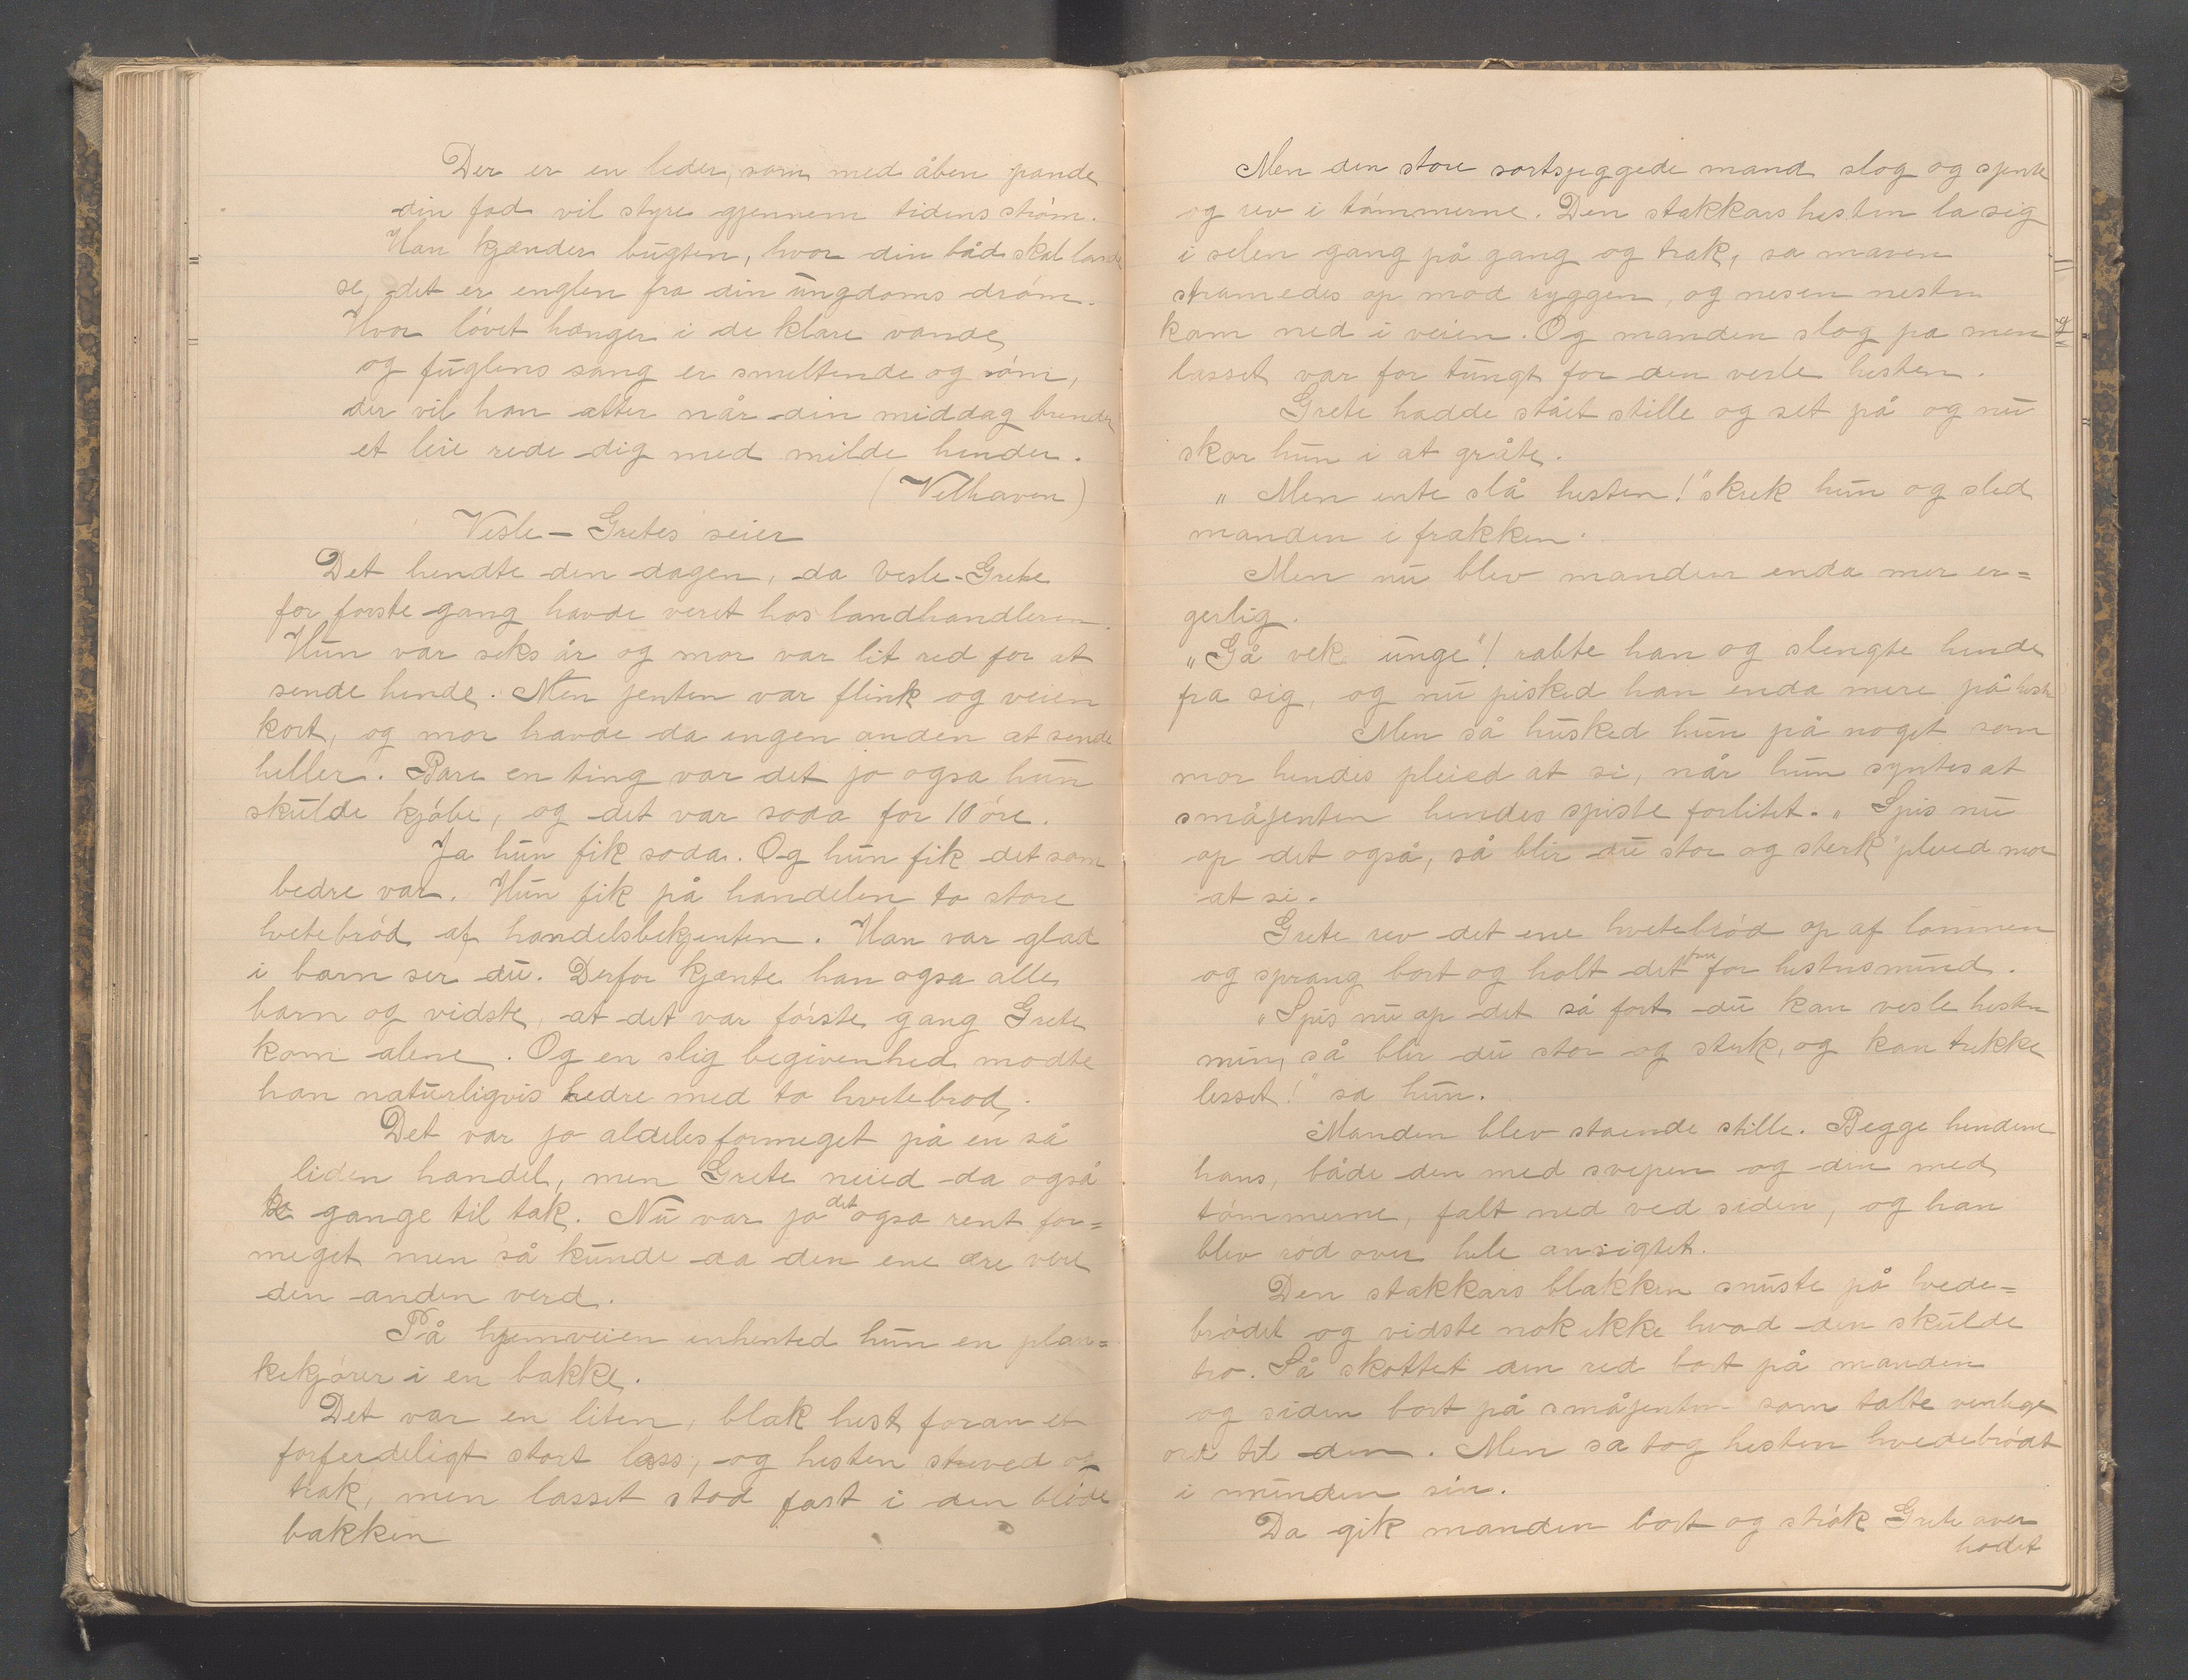 Der er en leder, som med åben pande
din fod vil styre gjennem tidens strøm.
Han kjender bugten, hvor din båd skal lande
se, det er englen fra din ungdoms drøm.
Hvor løvet hænger i de klare vande,
og fuglens sang er smeltende og øm,
der vil han atter når din middag brender
et leie rede dig med milde hender.
(Velhaven)
Vesle-Gretes seier
Det hendte den dagen, da Vesle-Grete
for første gang havde veret hos landhandleren.
Hun var seks år og mor var lit red for at
sende hende. Men jenten var flink og veien
kort, og mor havde da ingen anden at sende
heller. Bare en ting var det jo ogsa hun
skulde kjøbe, og det var soda for 10 øre.
Ja hun fik soda. Og hun fik det som
bedre var. Hun fik på handelen to store
hvetebrød af handelsbetjenten. Han var glad
i barn ser du. Derfor kjænte han ogsa alle
barn og vidste, at det var første gang Grete
kom alene. Og en slig begivenhed modte
han naturligvis hedre med to hvetebrod.
Det var jo aldeles formeget på en så
liden handel, men Grete neied da også
to gange til tak. Nu var jo det ogsa rent for=
meget men så kunde da den ene ære vere
den anden verd.
På hjemveien inhented hun en plan=
kekjører i en bakke.
Det var en liten, blak hest foran et
forferdeligt stort lass, og hesten streved og
trak, men lasset stod fast i den bløde
bakken
Men den store sortsjeggede mand slog og spente
og rev i tømmerne. Den stakkars hesten la sig
i selen gang på gang og trak, sa maven
stramedes op mod ryggen, og nesen nesten
kom ned i veien. Og manden slog pa men
lasset var for tungt for den vesle hesten.
Grete hadde stået stille og set på og nu
skar hun i at gråte.
„Men ente slå hesten!" skrek hun og sled
manden i frakken.
Men nu blev manden enda mer er=
gerlig.
„Gå vek unge"! ralte han og slengte hende
fra sig, og nu pisked han enda mere på heste
Men så husked hun på noget som
mor hendes pleied at si, når hun syntes at
småjenten hendes spiste forlitet. „Spis nu
op det også, så blir du stor og sterk" pleied mor
at si.
Grete rev det ene hvetebrød op af lommen
og sprang bort og holt det for hestens mund.
„Spis nu op det så fort du kan vesle hesten
min, så blir du stor og sterk, og kan trekke
lesset!" sa hun.
Manden blev staende stille. Begge hendene
hans, både den med svepen og den med
tømmerne, falt ned ved siden, og han
blev rød over hele ansigtet.
Den stakkars blakken snuste på hvede=
brødet og vidste nok ikke hvad den skulde
tro. Så skottet den red bort på manden
og siden bort på småjenten som talte venlege
ord til den. Men sa tog hesten hvedebrødet
i munden sin.
Da gik manden bort og strøk Grete over
hodet